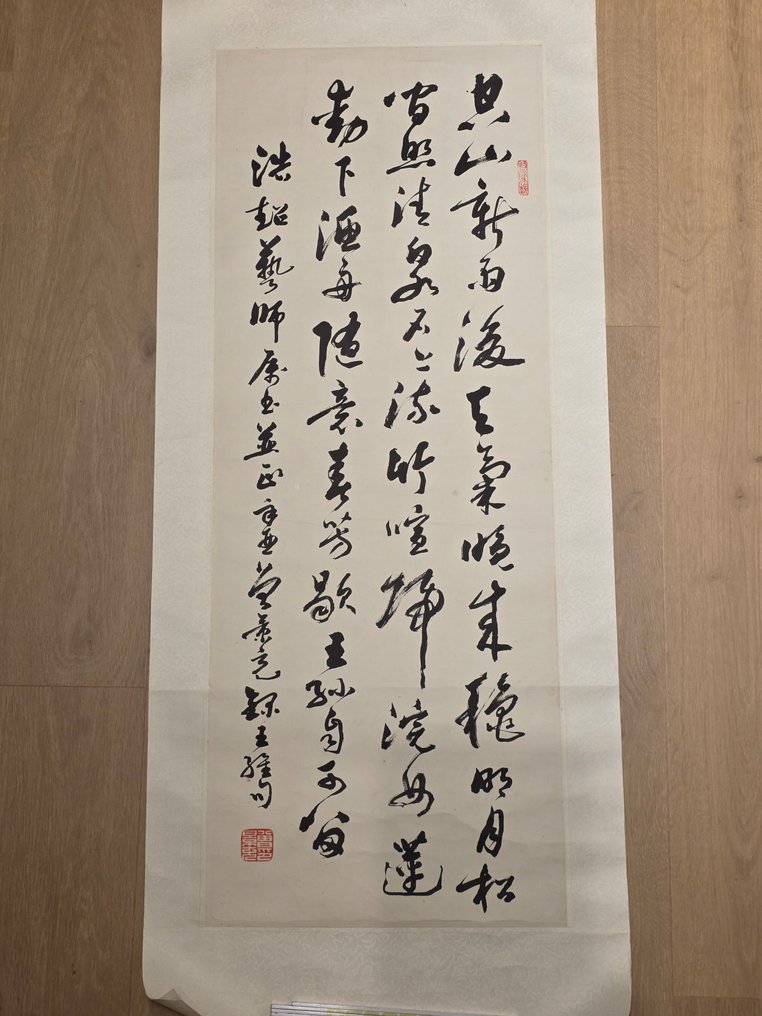 空山新雨後天氣晚來穐明月松
間照清泉石上流竹喧歸浣女蓮
動下漁舟隨意春芳歇王孫自可留
浩超藝師属书並正辛曾景充錄王維句